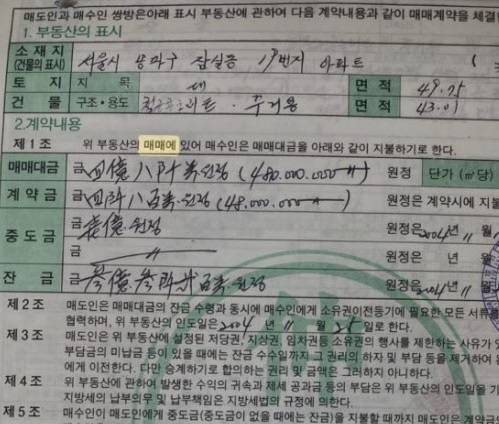 매도인과 매수인 쌍방은 아래 표시 부동산에 관하여 다음 계약내용과 같이 매매계약을 체결
1. 부동산의 표시
소재지 (건물의 표시) 서울시 송파구 잠실동 19번지 아파트 (
토 지 지 목 대 면 적 49.75
건 물 구조·용도 철근콘크리트·주거용 면 적 43.01
2.계약내용
제1조 위 부동산의 매매에 있어 매수인은 매매대금을 아래와 같이 지불하기로 한다.
매매대금 금 四億八阡萬원정 (480.000.000 원정 단가 (㎡당)
계약금 금 四阡八百萬원정 (48.000.000 원정은 계약시에 지불
중도금 금 壹億원정 원정은 2004年 11月
금 〃 원정은 年 月
잔 금 금 參億參阡弐百萬원정 원정은 2004年 11月
제2조 매도인은 매매대금의 잔금 수령과 동시에 매수인에게 소유권이전등기에 필요한 모든 서류를
협력하며, 위 부동산의 인도일은 2004년 11월 25일로 한다.
제3조 매도인은 위 부동산에 설정된 저당권, 지상권, 임차권등 소유권의 행사를 제한하는 사유가 있
부담금의 미납금 등이 있을 때에는 잔금 수수일까지 그 권리의 하자 및 부담 등을 제거하여 완
에게 이전한다. 다만 승계하기로 합의하는 권리 및 금액은 그러하지 아니하다.
제4조 위 부동산에 관하여 발생한 수익의 귀속과 제세 공과금 등의 부담은 위 부동산의 인도일을 기
지방세의 납부의무 및 납부책임은 지방세법의 규정에 의한다.
제5조 매수인이 매도인에게 중도금(중도금이 없을 때에는 잔금)을 지불할 때까지 매도인은 계약금